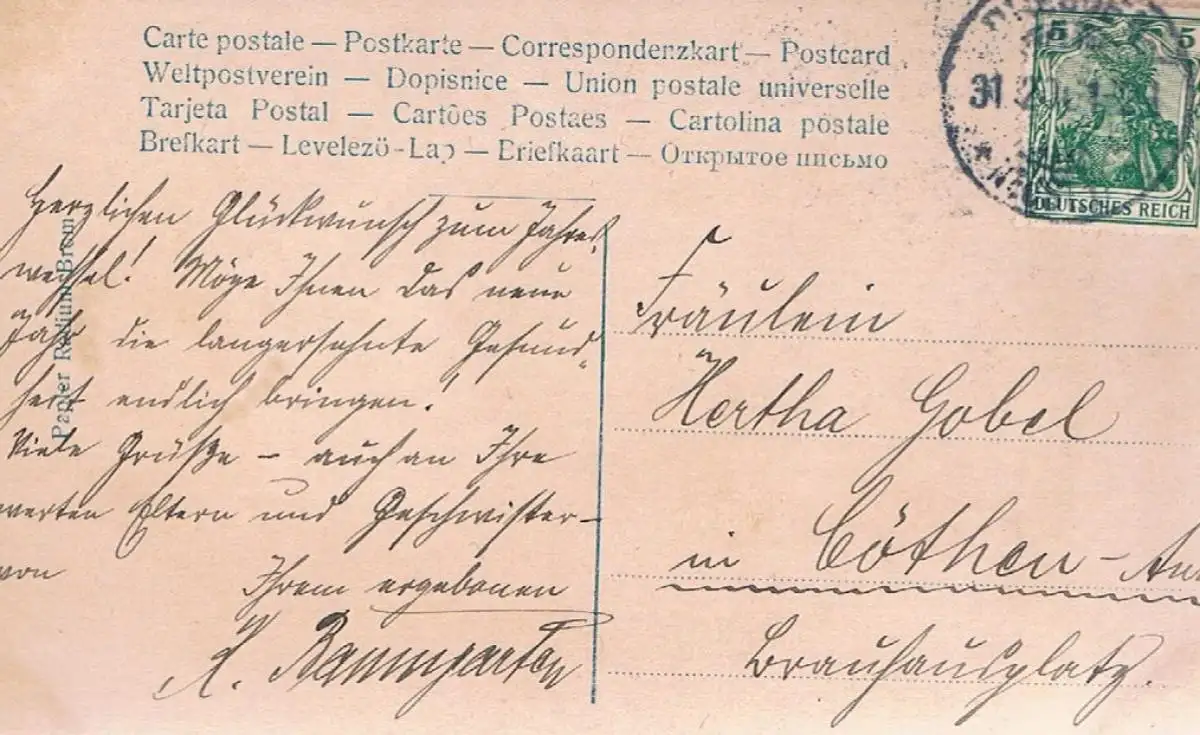 Carte postale — Postkarte — Correspondenzkart — Postcard
Weltpostverein — Dopisnice — Union postale universelle
Tarjeta Postal — Cartões Postaes — Cartolina postale
Brefkart — Levelezö-Lap — Briefkaart — Открытое письмо
5 5
DEUTSCHES REICH
31.12.
Papier Radium-Brom
Herzlichen Glückwunsch zum Jahres
wechsel! Möge Ihnen das neue
Jahr die langersehnte Gesund„
heit endlich bringen.
Viele Grüße – auch an Ihre
werten Eltern und Geschwister –
von
Ihrem ergebenen
Baumgarten
Fräulein
Hertha Gobel
in Cöthen – An
Brauhausplatz.